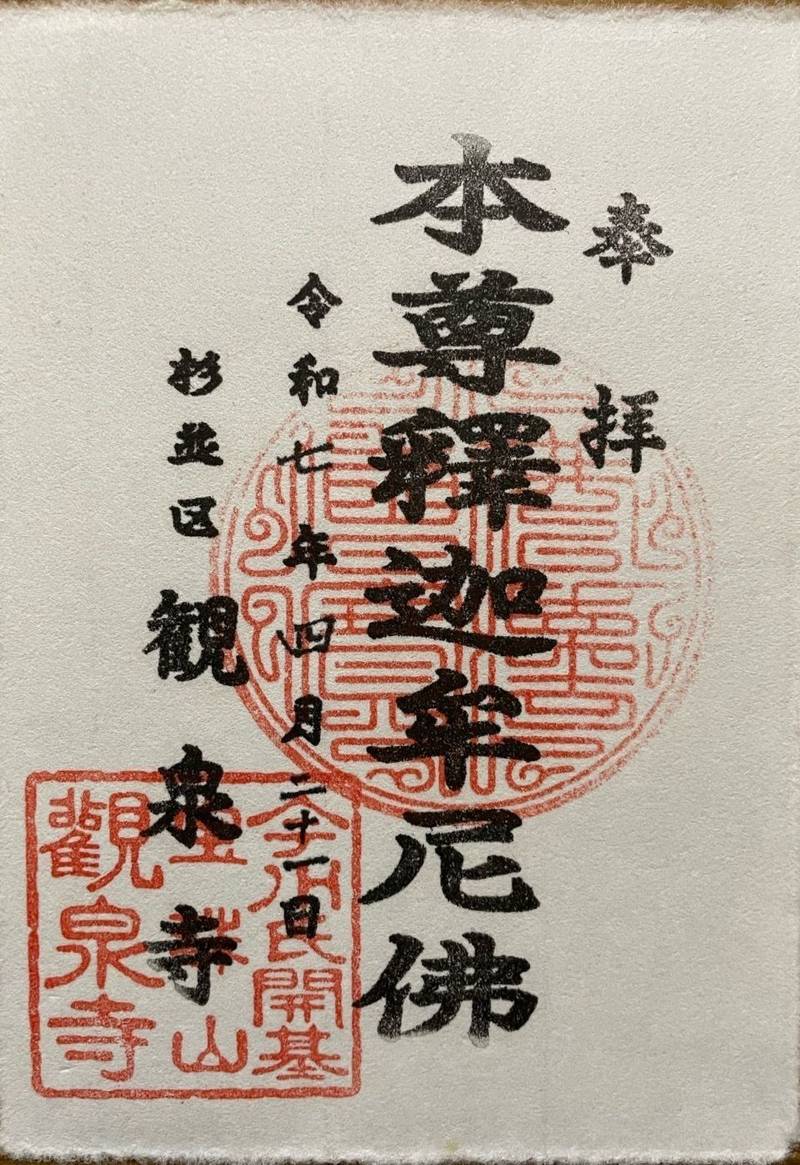 奉拝
本尊釋迦牟尼佛
令和七年四月二十一日
杉並区 観泉寺
今川氏開基
宝珠山
觀泉寺